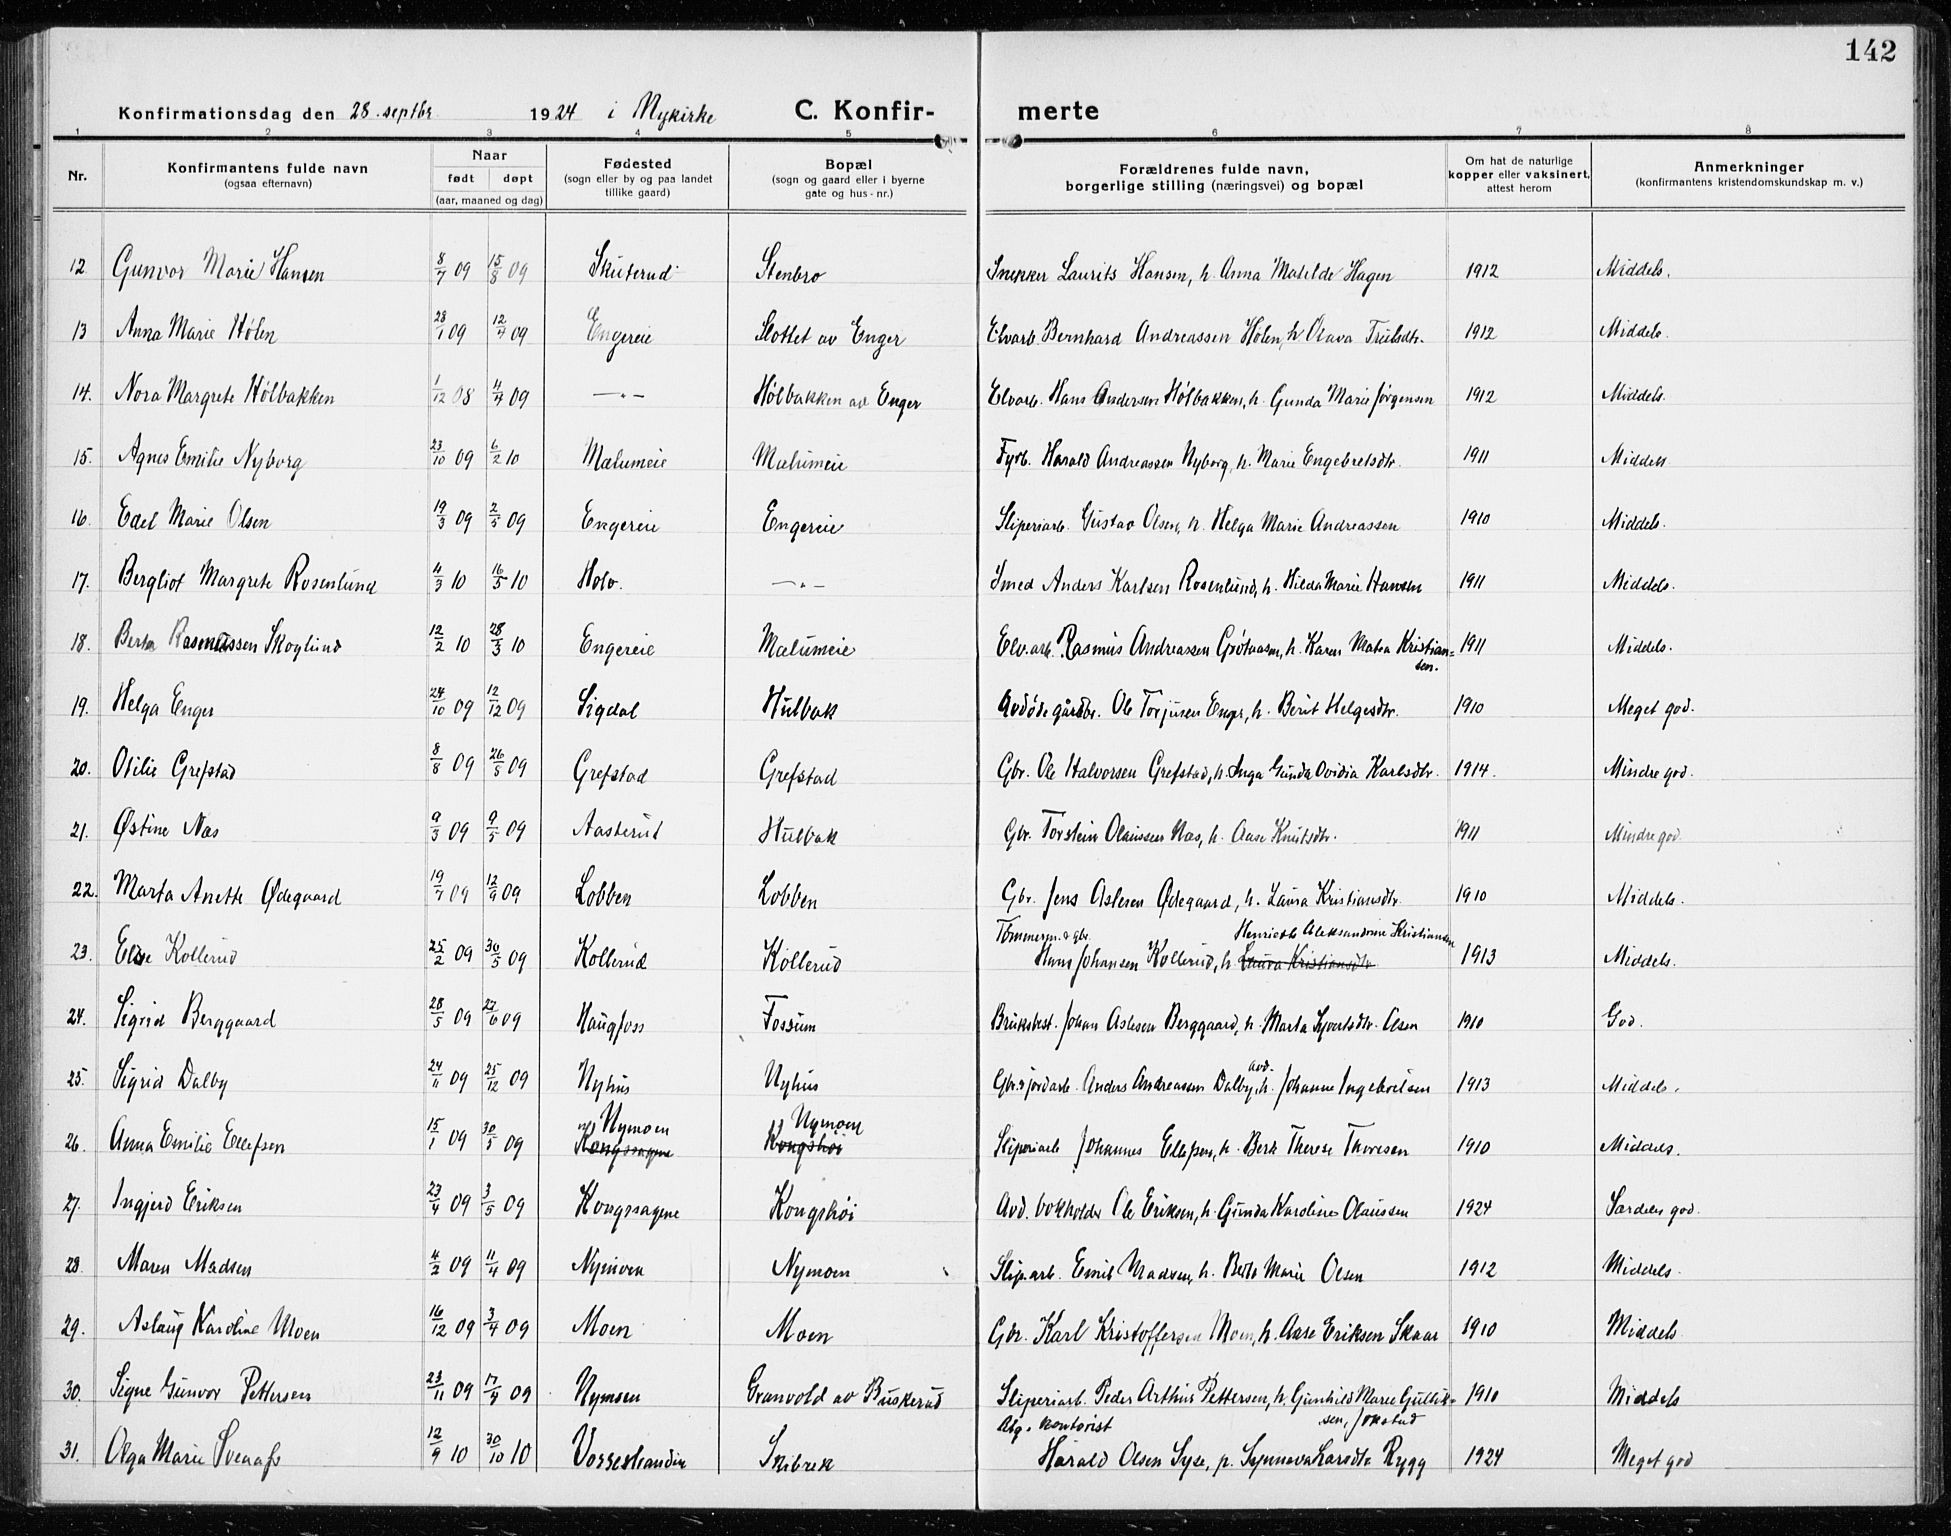 142
Konfirmationsdag den 28. septbr. 1924 i Nykirke C. Konfir- merte
1 2 3 4 5 6 7 8
Nr. Konfirmantens fulde navn (ogsaa efternavn) Naar født døpt (aar, maaned og dag) Fødested (sogn eller by og paa landet tillike gaard) Bopæl (sogn og gaard eller i byerne gate og hus-nr.) Forældrenes fulde navn, borgerlige stilling (næringsvei) og bopæl Om hat de naturlige kopper eller vaksinert, attest herom Anmerkninger (konfirmantens kristendomskundskap m. v.)
12. Gunvor Marie Hansen 8/7 09 15/8 09 Skuterud Stenbro Snekker Laurits Hansen, h. Anna Matilde Hagen 1912 Middels.
13 Anna Marie Hølen 28/1 09 12/4 09 Engereie Slottet av Enger Elvarb. Bernhard Andreassen Hølen, h. Olava Trulsdtr. 1912 Middels.
14. Nora Margrete Hølbakken 1/12 08 4/4 09 —"— Hølbakken av Enger Elvarb. Hans Andersen Hølbakken, h. Gunda Marie Jørgensen 1912 Middels.
15. Agnes Emilie Nyborg 23/10 09 6/2 10 Mælumeie Mælumeie Fyrb. Harald Andreassen Nyborg, h. Marie Engebretsdtr. 1911 Middels
16. Edel Marie Olsen 19/3 09 2/5 09 Engereie Engereie Sliperiarb. Gustav Olsen, h. Helga Marie Andreassen 1910 Middels.
17. Bergliot Margrete Rosenlund 4/3 10 16/5 10 Holv. —"— Smed Anders Karlsen Rosenlund, h. Hilda Marie Hansen 1911 Middels.
18. Berta Rasmussen Skoglund 12/2 10 28/3 10 Engereie Mælumeie Elv.arb. Rasmus Andreassen Grøtaasen, h. Karen Matea Kristian= 1911 Middels.
sen.
19. Helga Enger 24/10 09 12/12 09 Sigdal Hulbak Avdøde gårdbr. Ole Torjusen Enger, h. Berit Helgesdtr. 1910 Meget god.
20. Otilie Grefstad 8/8 09 26/5 09 Grefstad Grefstad Gbr. Ole Halvorsen Grefstad, h. Inga Gunda Ovidia Karlsdtr. 1914. Mindre god.
21. Østine Næs 9/3 09 9/5 09 Aasterud Hulbak Gbr. Torstein Olaussen Næs, h. Aase Knutsdtr. 1911 Mindre god.
22. Marta Anette Ødegaard 19/7 09 12/9 09 Lobben Lobben Gbr. Jens Aslesen Ødegaard, h. Laura Kristiansdtr. 1910 Middels.
Tømmerm. & gbr. Henriette Aleksandrine Kristiansen
23. Else Kollerud 25/2 09 30/5 09 Kollerud Kollerud Hans Johansen Kollerud, h. Laura Kristiansdtr. 1913 Middels.
24. Sigrid Berggaard 28/5 09 27/6 09 Haugfoss Fossum Bruksbest. Johan Aslesen Berggaard, h. Marta Sjvertsdtr. Olsen 1910 God.
avd.
25. Sigrid Dalby 24/11 09 25/12 09 Nyhus Nyhus Gbr. & jordarb. Anders Andreassen Dalby, h. Johanne Ingebretsen 1913 Middels.
Nymoen Nymoen
26. Anna Emilie Ellefsen 15/1 09 30/5 09 Kongssagene Kongshøi Sliperiarb Johannes Ellefsen, h. Berte Therese Thoresen 1910 Middels.
27. Ingjerd Eriksen 23/4 09 3/5 09 Kongssagene Kongshøi Avd. bokholder Ole Eriksen, h. Gunda Karoline Olaussen 1924 Særdeles god.
28. Maren Madsen 4/2 09 11/4 09 Nymoen Nymoen Slip.arb. Emil Madsen, h. Berte Marie Olsen 1912 Middels.
29. Aslaug Karoline Moen 16/12 09 3/4 09 Moen Moen Gbr. Karl Kristoffersen Moen, h. Aase Eriksen Skaar 1910 Middels
30. Signe Gunvor Pettersen 23/11 09 17/4 09 Nymoen Granvold av Buskerud Sliperiarb. Peder Arthur Pettersen, h. Gunhild Marie Gullik= 1910 Middels
sen, Jokstad
kontorist
31. Olga Marie Svenafs 12/9 10 30/10 10 Vossestranden Skibrek Harald Olsen Syse, p. Synneva Larsdtr. Rygg 1924 Meget god